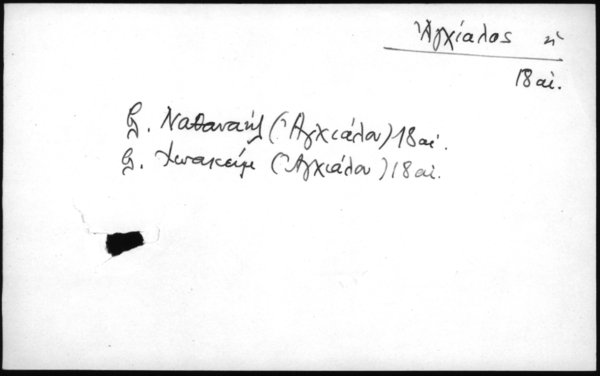 Ἀγχίαλος ἡ
18 αἰ.
βλ. Ναθαναὴλ (Ἀγχιάλου) 18 αἰ.
βλ. Ἰωακεὶμ (Ἀγχιάλου) 18 αἰ.